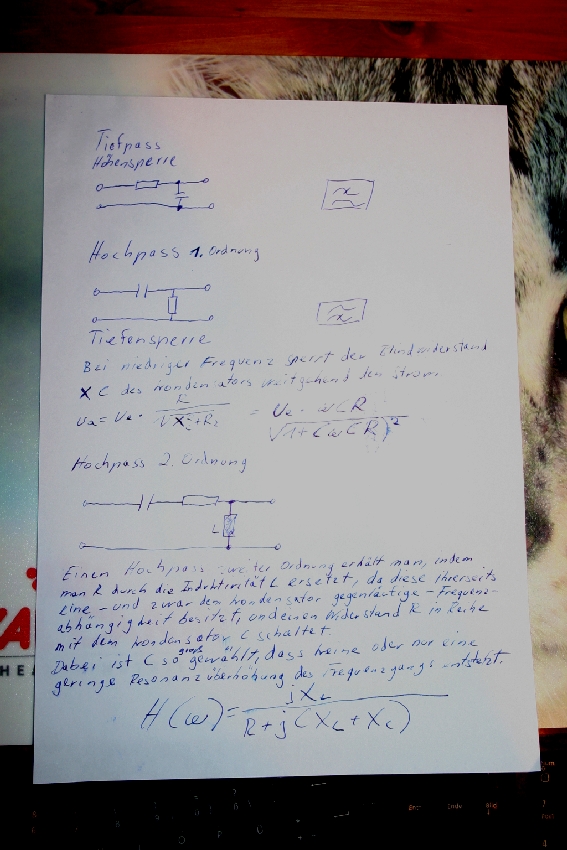 Tiefpass
Höhensperre
Hochpass 1. Ordnung
Tiefensperre
Bei niedriger Frequenz sperrt der Blindwiderstand
X C des Kondensators weitgehend den Strom
ua = Ue · R / √X²+R2 = Ue · ωCR / √1+(ωCR)²
Hochpass 2. Ordnung
L
Einen Hochpass zweiter Ordnung erhält man, indem
man R durch die Induktivität L ersetzt, da diese ihrerseits
eine - und zwar dem Kondensator gegenläufige - Frequenz-
abhängigkeit besitzt, und einen Widerstand R in Reihe
mit dem Kondensator C schaltet.
Dabei ist C so groß gewählt, dass keine oder nur eine
geringe Resonanzüberhöhung des Frequenzgangs entsteht.
H(ω) = jXL / R+j(XL+XC)